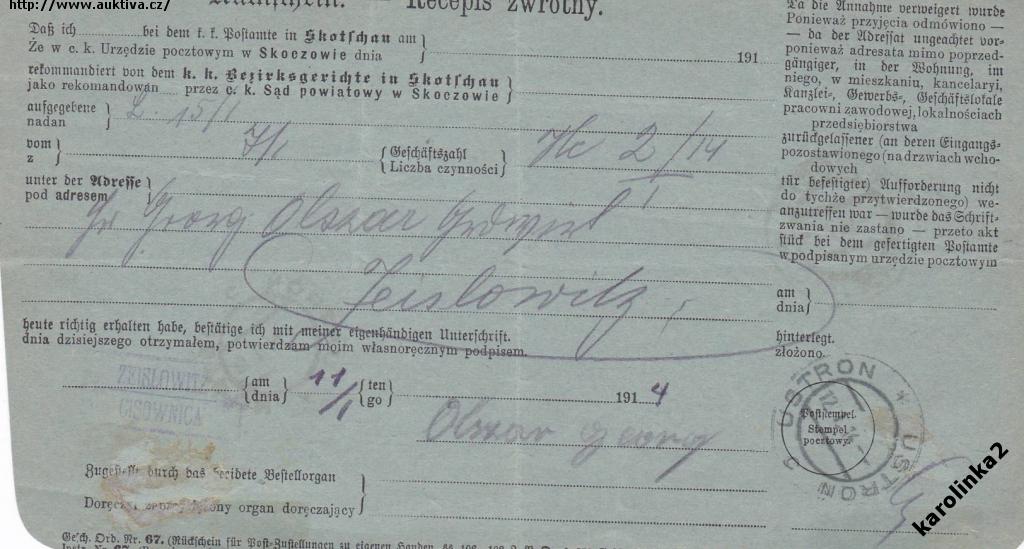 http://www.auktiva.cz/
Recepis zwrotny.
Daß ich bei dem k. k. Postamte in Skotschau am
Że w c. k. Urzędzie pocztowym w Skoczowie dnia 191
rekommandiert von dem k. k. Bezirksgerichte in Skotschau
jako rekomandowan przez c. k. Sąd powiatowy w Skoczowie
aufgegebene
nadan
L. 15/1
vom
z
7/1
Geschäftszahl
Liczba czynności
Hc 2/14
unter der Adresse
pod adresem
Georg Olszar
Zeislowitz
am
dnia
heute richtig erhalten habe, bestätige ich mit meiner eigenhändigen Unterschrift.
dnia dzisiejszego otrzymałem, potwierdzam moim własnoręcznym podpisem.
hinterlegt.
złożono.
ZEISLOWITZ
CISOWNICA
am
dnia
11/1
ten
go
1914
Olszar Georg
Zugestellt durch das beeidete Bestellorgan
organ doręczający
Da die Annahme verweigert wurde
Ponieważ przyjęcia odmówiono —
— da der Adressat ungeachtet vor-
ponieważ adresata mimo poprzed-
gängiger, in der Wohnung, im
niego, w mieszkaniu, kancelaryi,
Kanzlei-, Gewerbs-, Geschäftslokale
pracowni zawodowej, lokalnościach
przedsiębiorstwa
zurückgelassener (an deren Eingangs-
pozostawionego (na drzwiach wcho-
dowych
tür befestigter) Aufforderung nicht
do tychże przytwierdzonego) we-
anzutreffen war — wurde das Schrift-
zwania nie zastano — przeto akt
stück bei dem gefertigten Postamte
w podpisanym urzędzie pocztowym
USTRON
USTRON
Poststempel.
Stempel
pocztowy.
karolinka2
Gesch. Ord. Nr. 67. (Rückschein für Post-Zustellungen zu eigenen Handen,